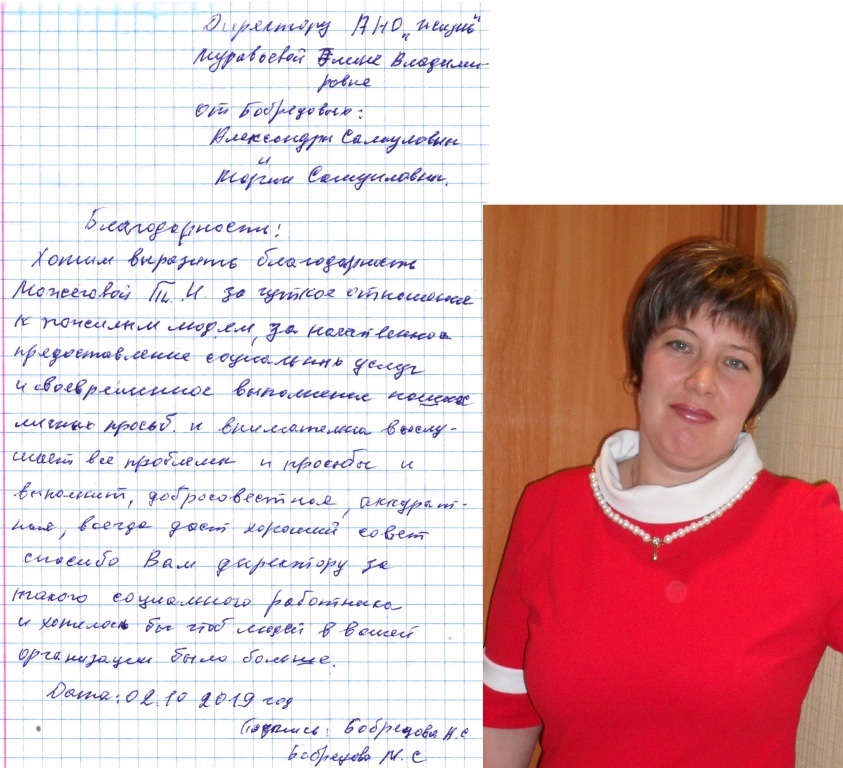 Директору АНО „Жизнь"
Муравьевой Элине Владими-
ровне
от Бобрецовых:
Александры Самуиловны
и
Марии Самуиловны.
Благодарность!
Хотим выразить благодарность
Можеговой Т. И. за чуткое отношение
к пожилым людям, за качественное
предоставление социальных услуг
и своевременное выполнение наших
личных просьб. и внимательна выслу-
шает все проблемы и просьбы и
выполнит, добросовестная, аккурат-
ная, всегда даст хороший совет
спасибо Вам директору за
такого социального работника
и хотелось бы чтоб людей в вашей
организации было больше.
Дата: 02.10 2019 год
Подпись: Бобрецова А.С
Бобрецова М.С